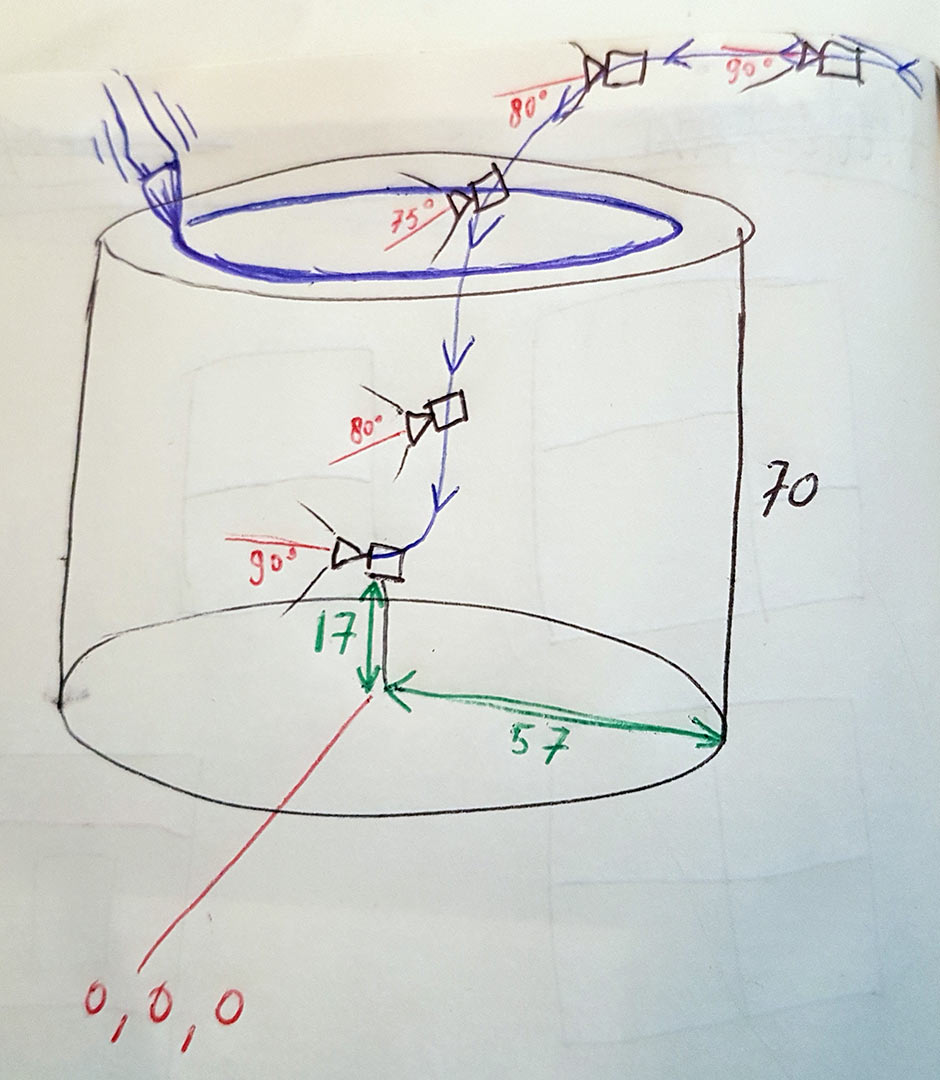 90°
80°
75°
80°
70
90°
17
57
0, 0, 0